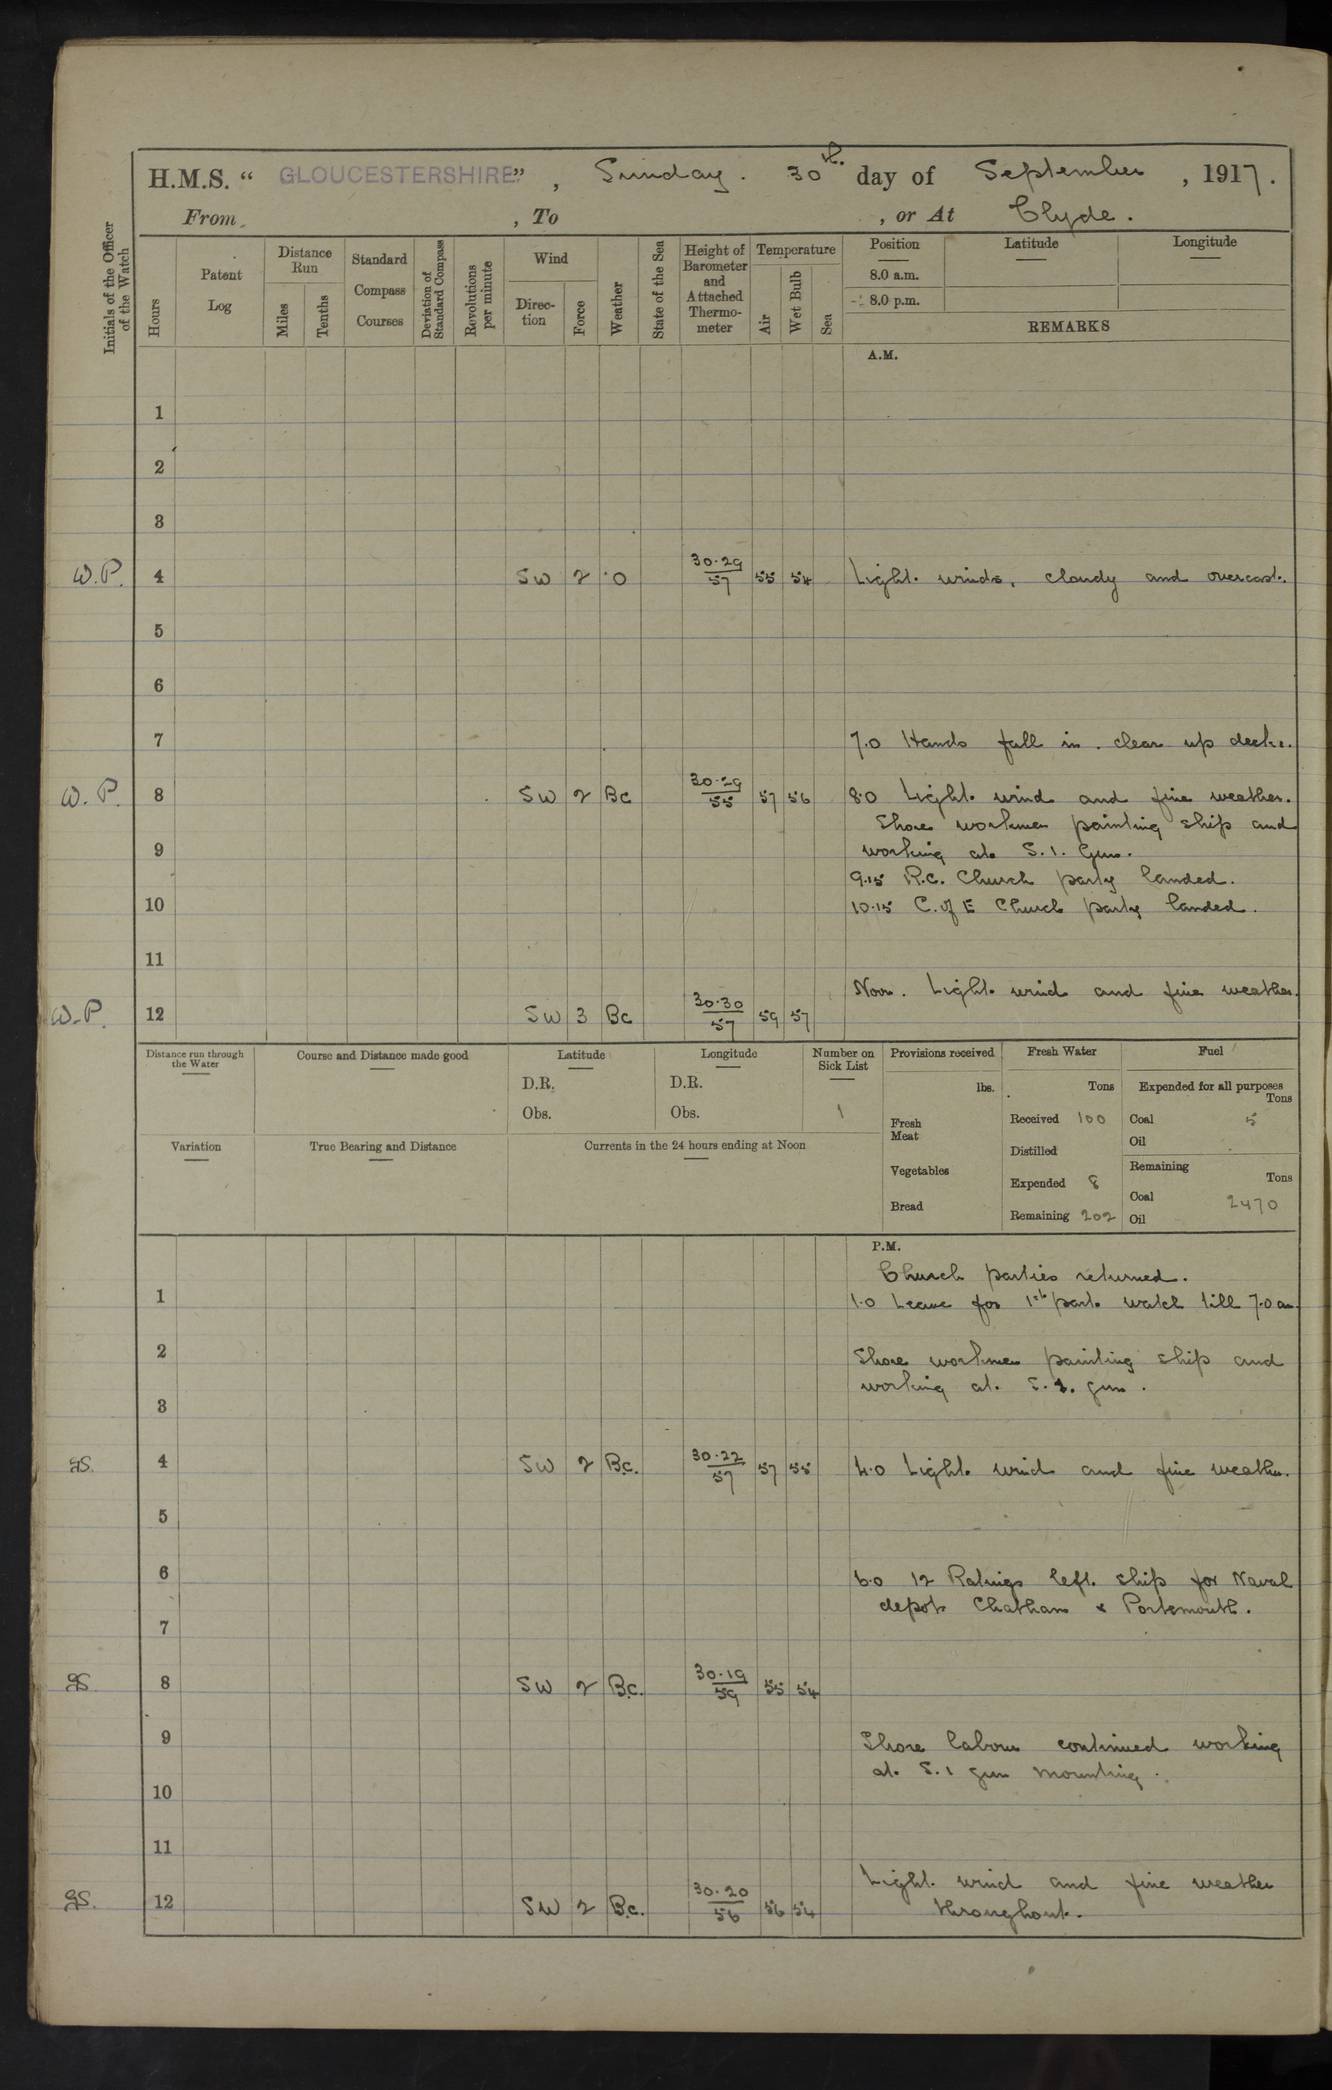 H.M.S. “ GLOUCESTERSHIRE ” , Sunday . 30th. day of September , 1917.
From , To , or At Clyde .
Initials of the Officer of the Watch
Hours
Patent Log
Distance Run
Miles
Tenths
Standard Compass Courses
Deviation of Standard Compass
Revolutions per minute
Wind
Direc-tion
Force
Weather
State of the Sea
Height of Barometer and Attached Thermo-meter
Temperature
Air
Wet Bulb
Sea
Position
Latitude
Longitude
8.0 a.m.
8.0 p.m.
REMARKS
A.M.
1
2
3
W.P. 4 SW 2 O 30.29/57 55 54 Light winds, cloudy and overcast.
5
6
7 7.0 Hands fall in . clear up decks.
W.P. 8 SW 2 Bc 30.29/55 57 56 8.0 Light wind and fine weather.
Shore workmen painting ship and
9 working at S.1. Gun.
9.15 R.C. Church party landed.
10 10.15 C. of E Church party landed.
11
Noon. Light wind and fine weather.
W.P. 12 SW 3 Bc 30.30/57 59 57
Distance run through the Water
Course and Distance made good
Latitude
D.R.
Obs.
Longitude
D.R.
Obs.
Number on Sick List
1
Provisions received
lbs.
Fresh Meat
Vegetables
Bread
Fresh Water
Tons
Received 100
Distilled
Expended 8
Remaining 202
Fuel
Expended for all purposes
Tons
Coal 5
Oil
Remaining
Tons
Coal 2470
Oil
Variation
True Bearing and Distance
Currents in the 24 hours ending at Noon
P.M.
Church parties returned.
1 1.0 Leave for 1st part watch till 7.0 am.
2 Shore workmen painting ship and
working at S.1. gun.
3
GS. 4 SW 2 Bc. 30.22/57 57 55 4.0 Light wind and fine weather.
5
6 6.0 12 Ratings left ship for Naval
depot Chatham & Portsmouth.
7
GS. 8 SW 2 Bc. 30.19/59 55 54
9 Shore labour continued working
at S.1 gun mounting.
10
11
Light wind and fine weather
GS. 12 SW 2 Bc. 30.20/56 56 54 throughout.